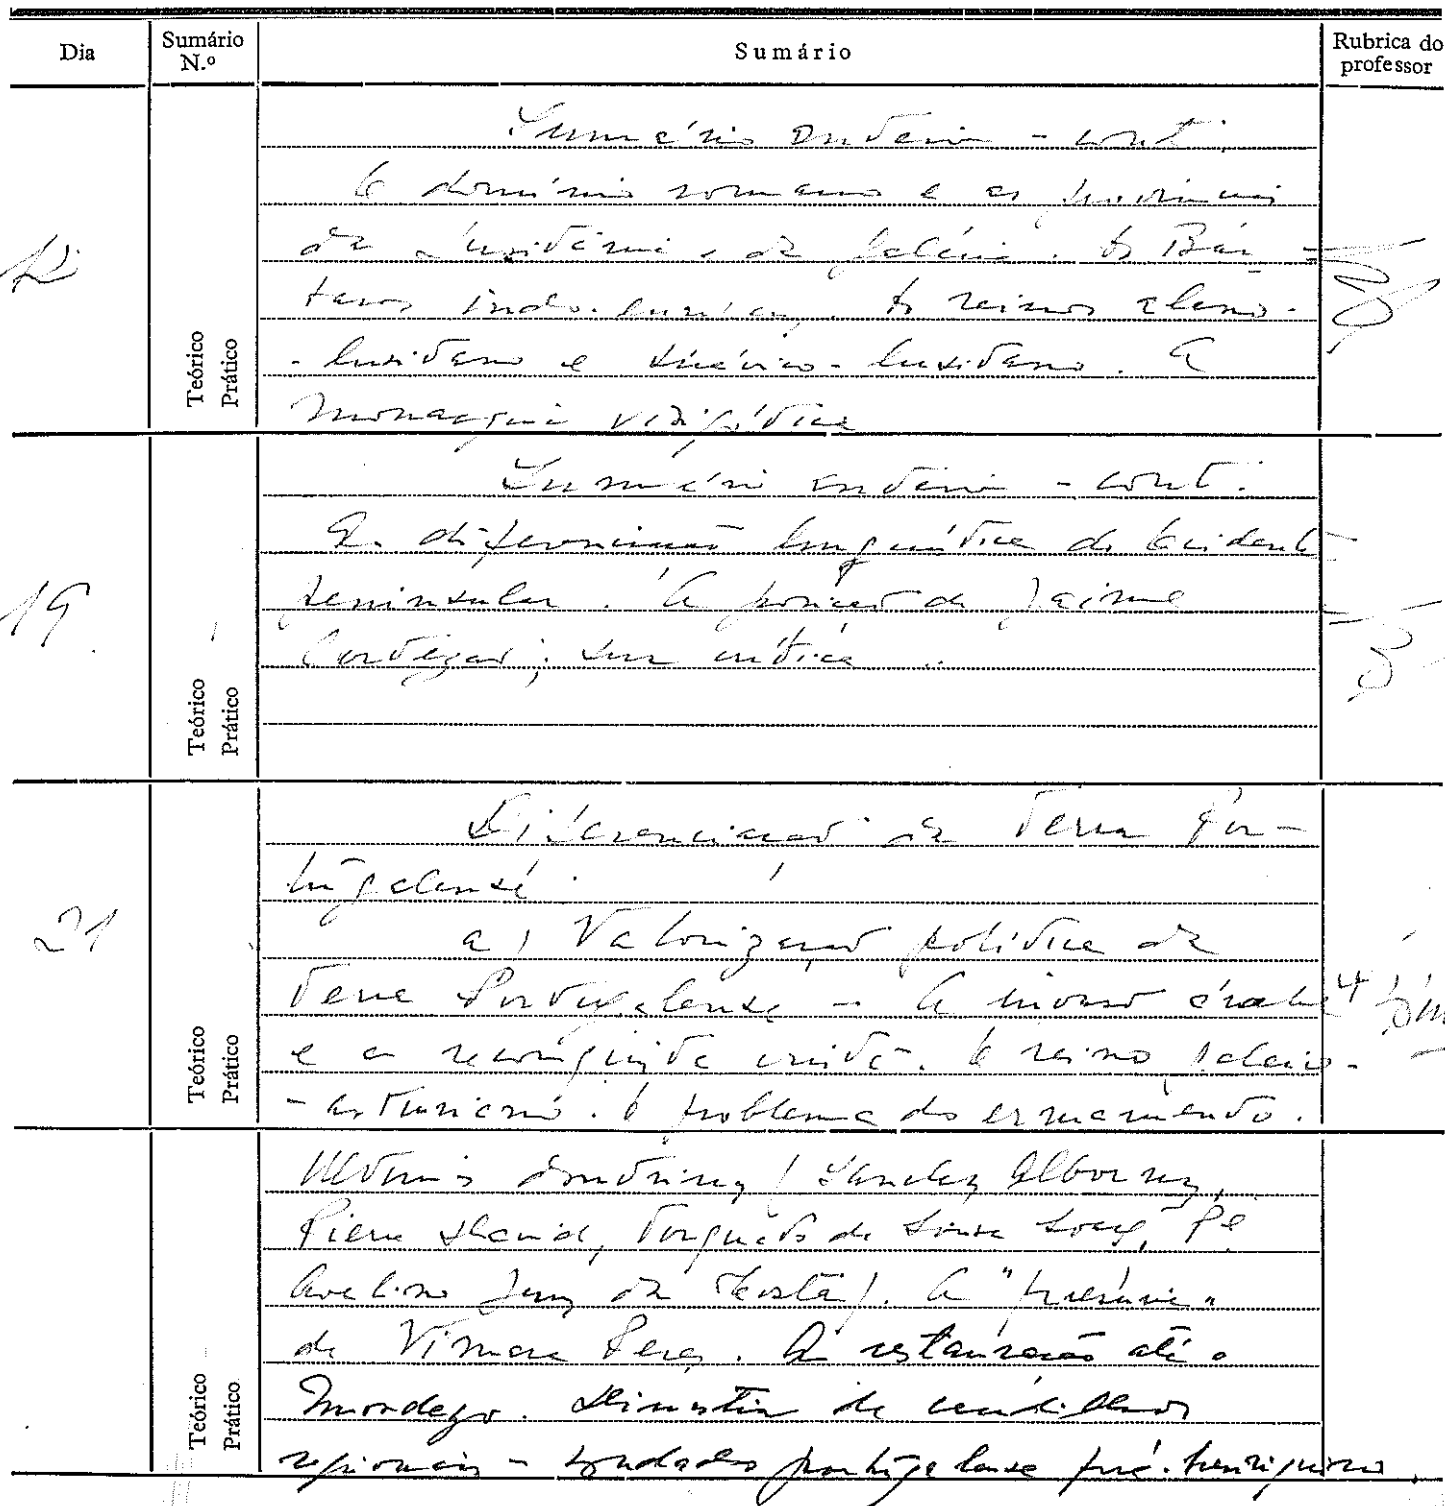 Dia
Sumário N.º
Sumário
Rubrica do professor
Sumário anterior - cont.
O domínio romano e as províncias
da Lusitânia e da Galécia. Os Bár-
baros . Os reinos alano-
-lusitano e suévico-lusitano. A
monarquia visigótica
12
Teórico
Prático
Sumário anterior - cont.
A diferenciação linguística do Ocidente
peninsular. A posição de Jaime
Cortesão; sua crítica.
19
Teórico
Prático
Diferenciação da Terra Por-
tugalense.
a) Valorização política da
Terra Portugalense - A invasão árabe
e a reconquista cristã. O reino galaico-
-asturiano. O problema do ermamento.
21
Teórico
Prático
Últimas doutrinas (Sanchez Albornoz,
Pierre David, Torquato de Sousa Soares, Pe
Avelino Jesus da Costa). A "presúria"
de Vimara Peres. A restauração até o
Mondego. Dinastia de caudilhos
regionais - condado portugalense pré-henriquino.
Teórico
Prático